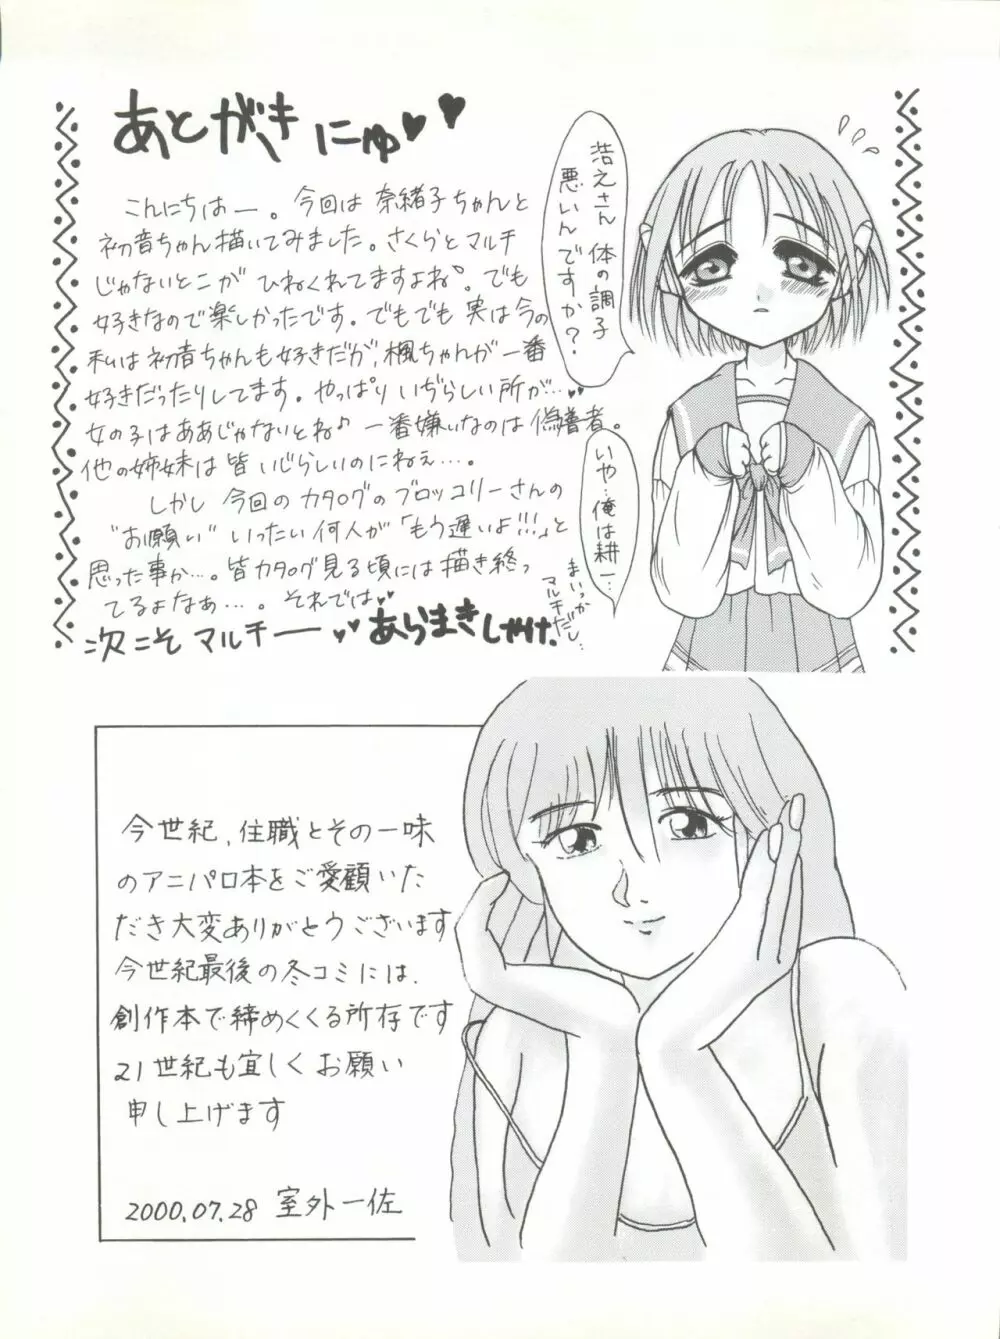 あとがきにゅ♥♥
こんにちはー。今回は奈緒子ちゃんと
初音ちゃん描いてみました。さくらとマルチ
じゃないとこが ひねくれてますよね。でも
好きなので楽しかったです。でもでも 実は今の
私は初音ちゃんも好きだが、楓ちゃんが一番
好きだったりしてます。やっぱり いぢらしい所が…♥♥
女の子はああじゃないとね♪ 一番嫌いなのは偽善者。
他の姉妹は皆いじらしいのにねぇ…。
しかし 今回のカタログのブロッコリーさんの
"お願い" いったい何人が「もう遅いよ!!!」と
思った事か…。皆カタログ見る頃には描き終っ
てるよなぁ…。それでは♥♥
次こそマルチー♥♥ あらまきしゃけ.
浩之さん 体の調子
悪いんですか?
いや…俺は耕一…
まいっか
マルチだし…
今世紀、住職とその一味
のアニパロ本をご愛顧いた
だき大変ありがとうございます
今世紀最後の冬コミには、
創作本で締めくくる所存です
21世紀も宜しくお願い
申し上げます
2000.07.28 室外一佐